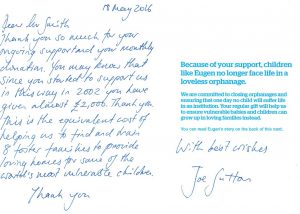 18 May 2016
Dear Mr Smith
Thank you so much for your
ongoing support and your monthly
donation. You may know that
since you started to support us
in this way in 2002 you have
given almost £2,000. Thank you
This is the equivalent cost of
helping us to find and train
8 foster families to provide
loving homes for some of the
world's most vulnerable children.
Thank you
Because of your support, children
like Eugen no longer face life in a
loveless orphanage.
We are committed to closing orphanages and
ensuring that one day no child will suffer life
in an institution. Your regular gift will help us
to ensure vulnerable babies and children can
grow up in loving families instead.
You can read Eugen's story on the back of this card.
With best wishes
Joe Sutton